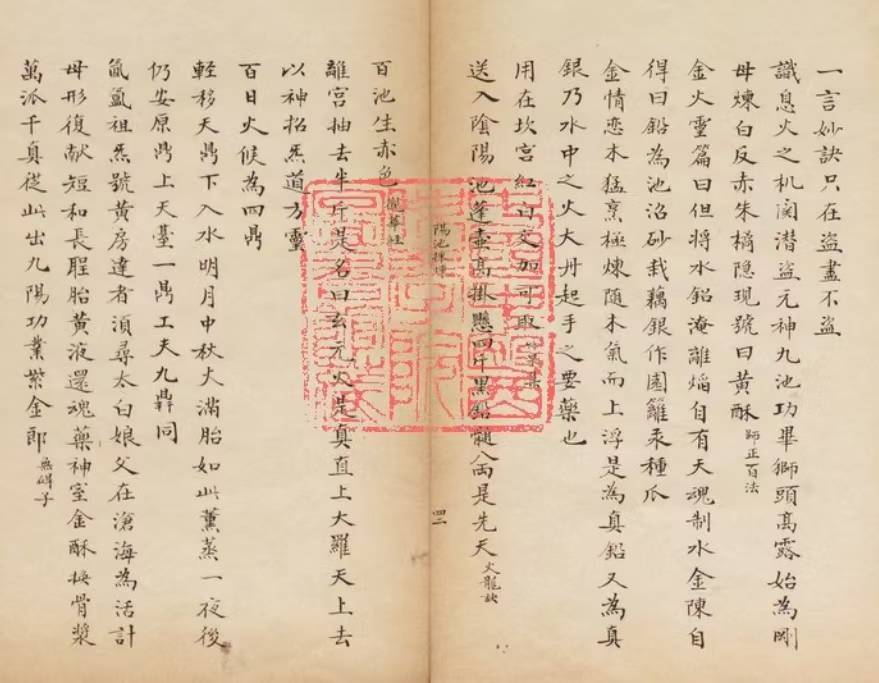 一言妙訣只在盜盡不盜
識息火之机關潜盜元神九池功畢獅頭高露始為剛
母煉白反赤朱橘隐現號曰黃酥 師正百法
金火靈篇曰但將水鉛淹離焰自有天魂制水金陳自
得曰鉛為池沼砂栽藕銀作園籬汞種瓜
金情恋木猛烹極煉随木氣而上浮是為真鉛又為真
銀乃水中之火大丹起手之要藥也
用在坎宮紅白交加可取
送入陰陽池蓬壷高掛懸四斤黑鉛髓八両是先天 火龍訣
陽池
四二
百池生赤色
離宮抽去半斤是名曰玄元火是真直上大羅天上去
以神招炁道方靈
百日火候為四鼎
輕移天鼎下入水明月中秋大滿胎如此薰蒸一夜後
仍安原鼎上天臺一鼎工夫九鼎同
氤氳祖炁號黃房達者湏尋太白娘父在滄海為活計
母形復献短和長聖胎黃液還魂藥神室金酥换骨漿
萬派千真從此出九陽功業紫金郎 無碍子